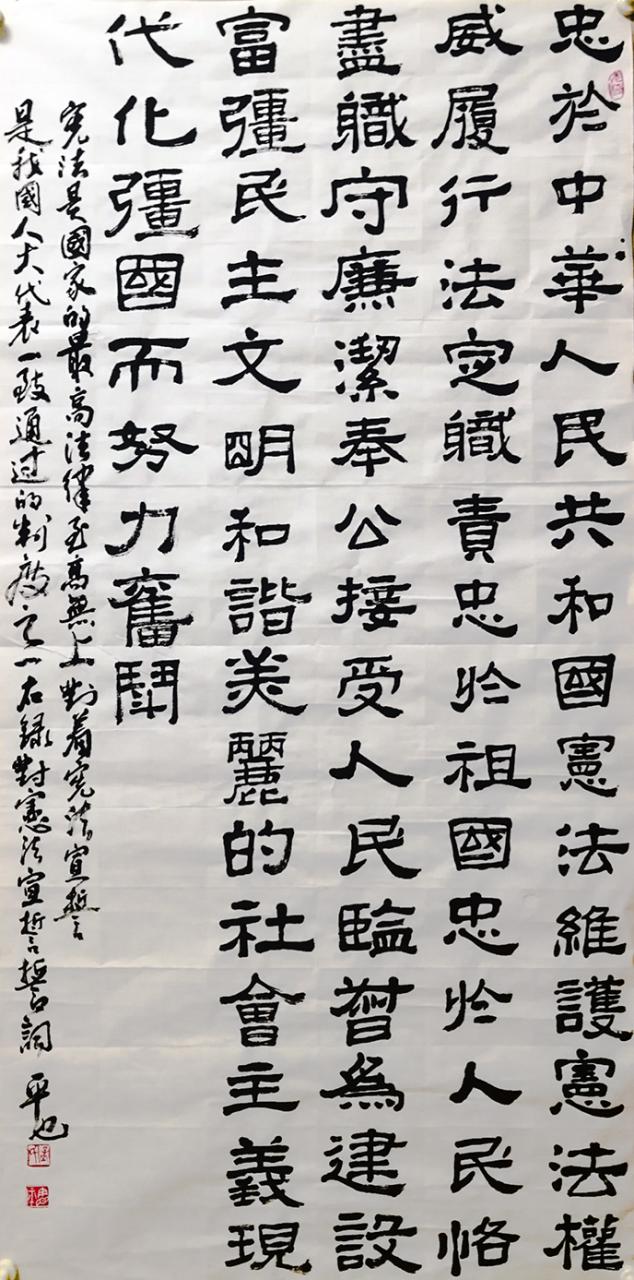 忠於中華人民共和國憲法維護憲法權
威履行法定職責忠於祖國忠於人民恪
盡職守廉潔奉公接受人民監督為建設
富彊民主文明和諧美麗的社會主義現
代化彊國而努力奮鬥
宪法是國家的最高法律至高無上對着宪法宣誓
是我國人大代表一致通过的制度之一右錄對憲法宣誓誓詞